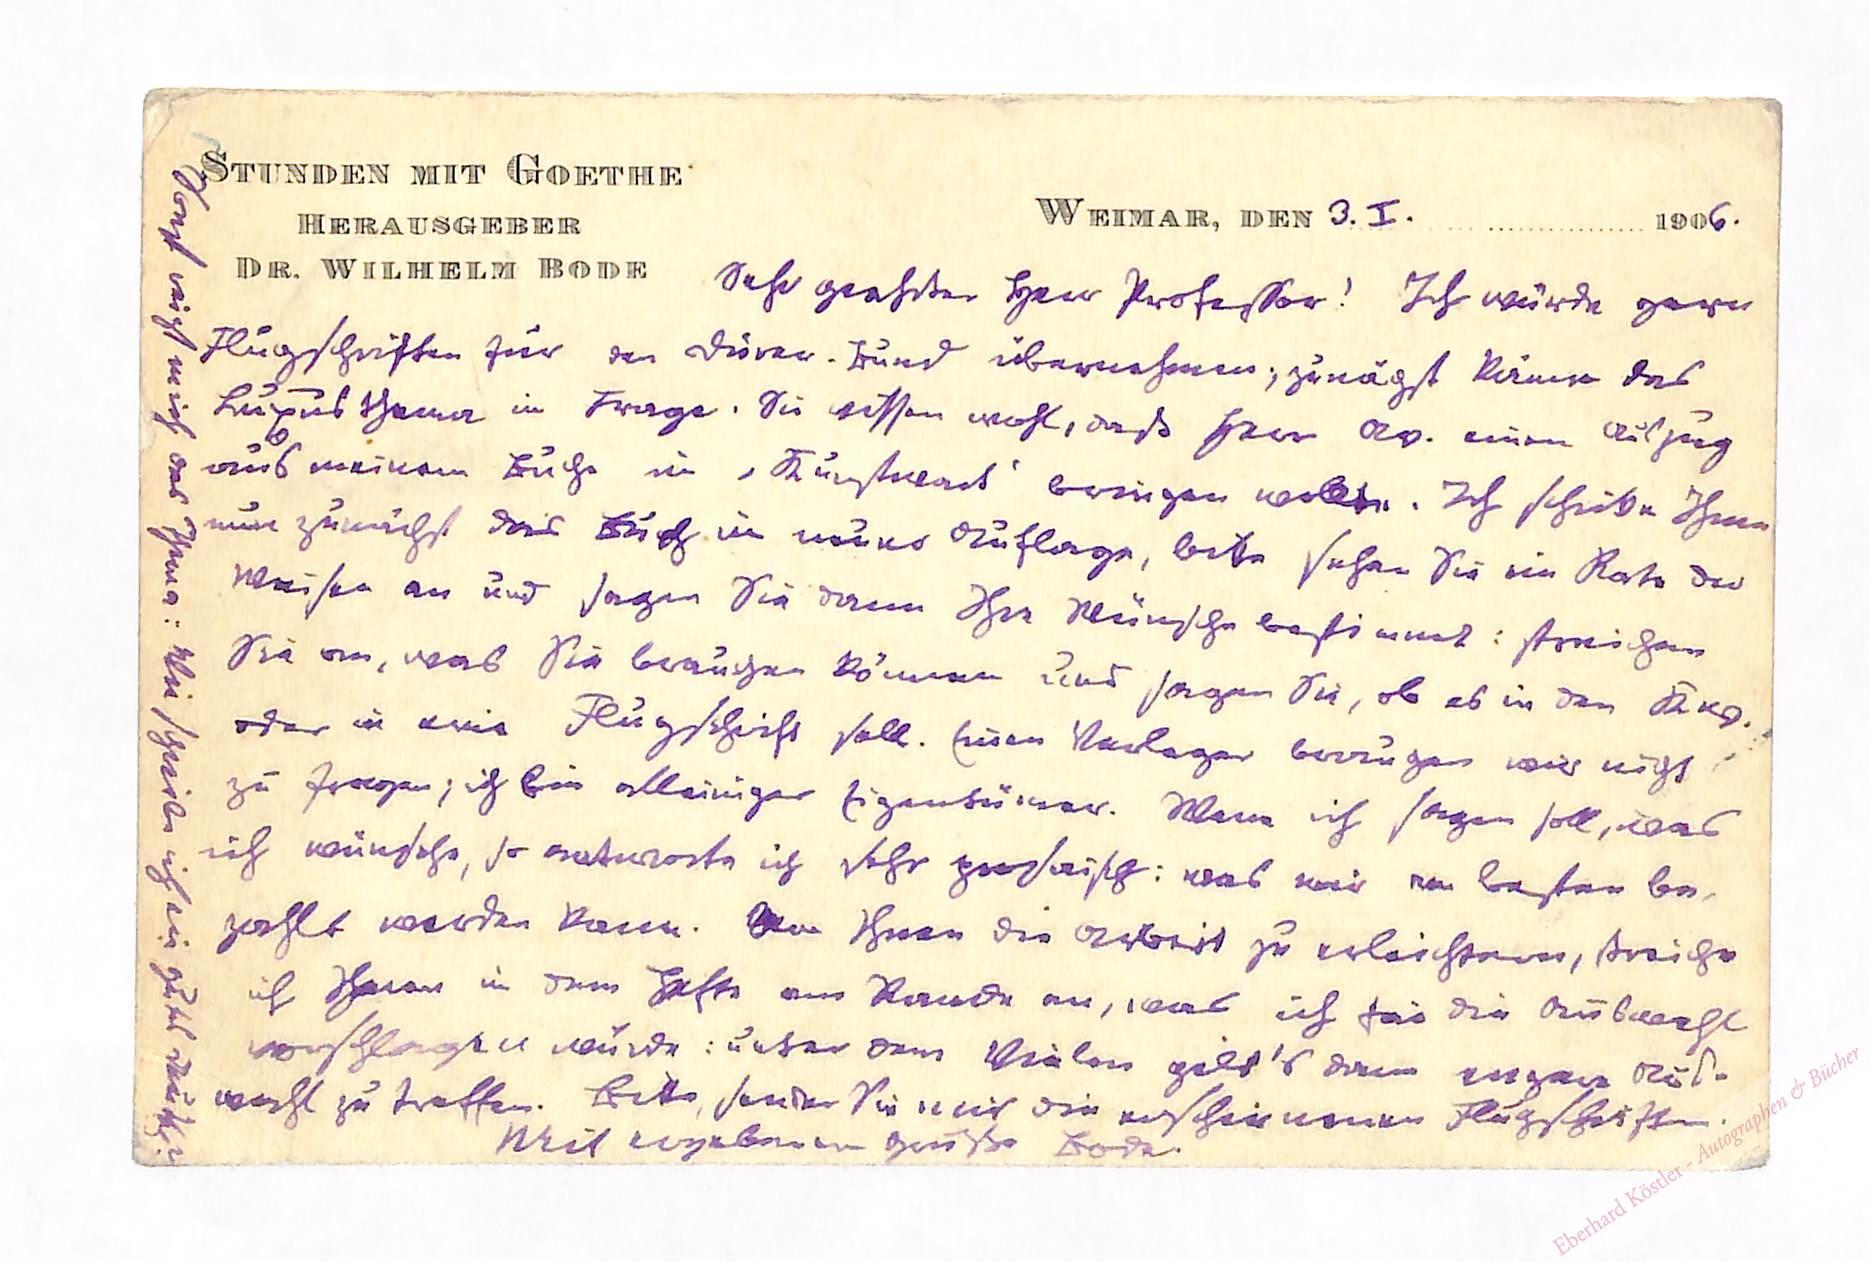 STUNDEN MIT GOETHE
HERAUSGEBER
DR. WILHELM BODE
WEIMAR, DEN 3. I. 1906.
Sehr geehrter Herr Professor! Ich würde gern
Flugschriften für den Dürer-Bund übernehmen; zunächst käme das
Luxusthema in Frage. Sie wissen wohl, daß Herr Av. einen Auszug
aus meinem Buche im „Kunstwart“ bringen wollte. Ich schicke Ihnen
nun zunächst das Buch in neuer Auflage, bitte sehen Sie ein Rate der
Weisen an und sagen Sie dann Ihre Wünsche bestimmt: streichen
Sie an, was Sie brauchen können und sagen Sie, ob es in den Kw.
oder in eine Flugschrift soll. Einen Verleger brauchen wir nicht
zu fragen; ich bin alleiniger Eigentümer. Wenn ich sagen soll, was
ich wünsche, so antworte ich sehr prosaisch: was mir am besten be-
zahlt werden kann. Um Ihnen die Arbeit zu erleichtern, streiche
ich Ihnen in dem Hefte am Rande an, was ich für die Auswahl
vorschlagen würde: unter dem Vielen gilt's dann engere Aus-
wahl zu treffen. Bitte, senden Sie mir die erschienenen Flugschriften.
Mit ergebenem Gruße Bode.
Sonst reizt mich das Thema: Wie schreibe ich ein gutes Deutsch?
Eberhard Köstler - Autographen & Bücher